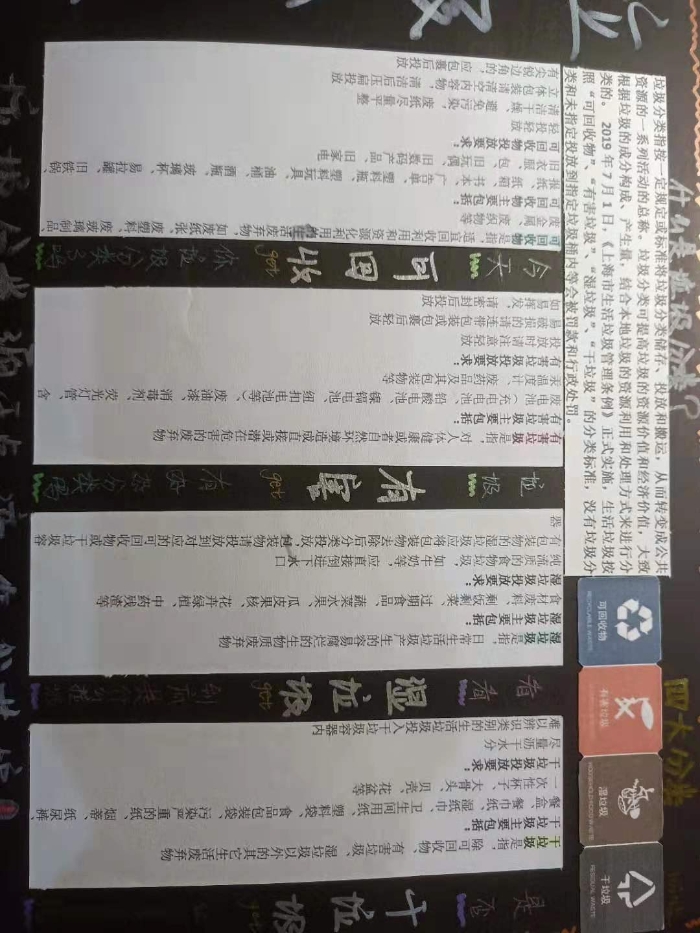 什么是垃圾分类
垃圾分类指按一定规定或标准将垃圾分类储存、投放和搬运，从而转变成公共
资源的一系列活动的总称。垃圾分类可提高垃圾的资源价值和经济价值，大致
根据垃圾的成分构成、产生量，结合本地垃圾的资源利用和处理方式来进行分
类的。2019年7月1日，《上海市生活垃圾管理条例》正式实施，生活垃圾按
照“可回收物”、“有害垃圾”、“湿垃圾”、“干垃圾”的分类标准，没有垃圾分
类和未指定投放到指定垃圾桶内等会被罚款和行政处罚。
四大分类
可回收物
RECYCLABLE WASTE
有害垃圾
湿垃圾
HOUSEHOLD FOOD WASTE
干垃圾
RESIDUAL WASTE
今天
可回收
get
你垃圾分类了吗
可回收物是指适宜回收利用和资源化利用的生活废弃物，如废纸张、废塑料、废玻璃制品、
废金属、废织物等
可回收物主要包括：
报纸、纸箱、书本、广告单、塑料瓶、塑料玩具、油桶、酒瓶、玻璃杯、易拉罐、旧铁锅、
旧衣服、包、旧玩偶、旧数码产品、旧家电
可回收物投放要求：
轻投轻放
清洁干燥、避免污染，废纸尽量平整
立体包装请清空内容物，清洁后压扁投放
有尖锐边角的，应包裹后投放
有害
get
有害垃圾是指，对人体健康或者自然环境造成直接或潜在危害的废弃物
有害垃圾主要包括：
废电池（充电电池、铅酸电池、镍镉电池、纽扣电池等）、废油漆、消毒剂、荧光灯管、含
汞温度计、废药品及其包装物等
有害垃圾投放要求：
投放时请注意轻放
易破损的请连带包装或包裹后轻放
如易挥发，请密封后投放
看看
湿垃圾
get
湿垃圾是指，日常生活垃圾产生的容易腐烂的生物质废弃物
湿垃圾主要包括：
食材废料、剩饭剩菜、过期食品、蔬菜水果、瓜皮果核、花卉绿植、中药残渣等
湿垃圾投放要求：
纯流质的食物垃圾，如牛奶等，应直接倒进下水口
有包装物的湿垃圾应将包装物去除后分类投放，包装物请投放到对应的可回收物或干垃圾容
器
是否
干垃圾
get
干垃圾是指，除可回收物、有害垃圾、湿垃圾以外的其它生活废弃物
干垃圾主要包括：
餐盒、餐巾纸、湿纸巾、卫生间用纸、塑料袋、食品包装袋、污染严重的纸、烟蒂、纸尿裤、
一次性杯子、大骨头、贝壳、花盆等
干垃圾投放要求：
尽量沥干水分
难以辨识类别的生活垃圾投入干垃圾容器内